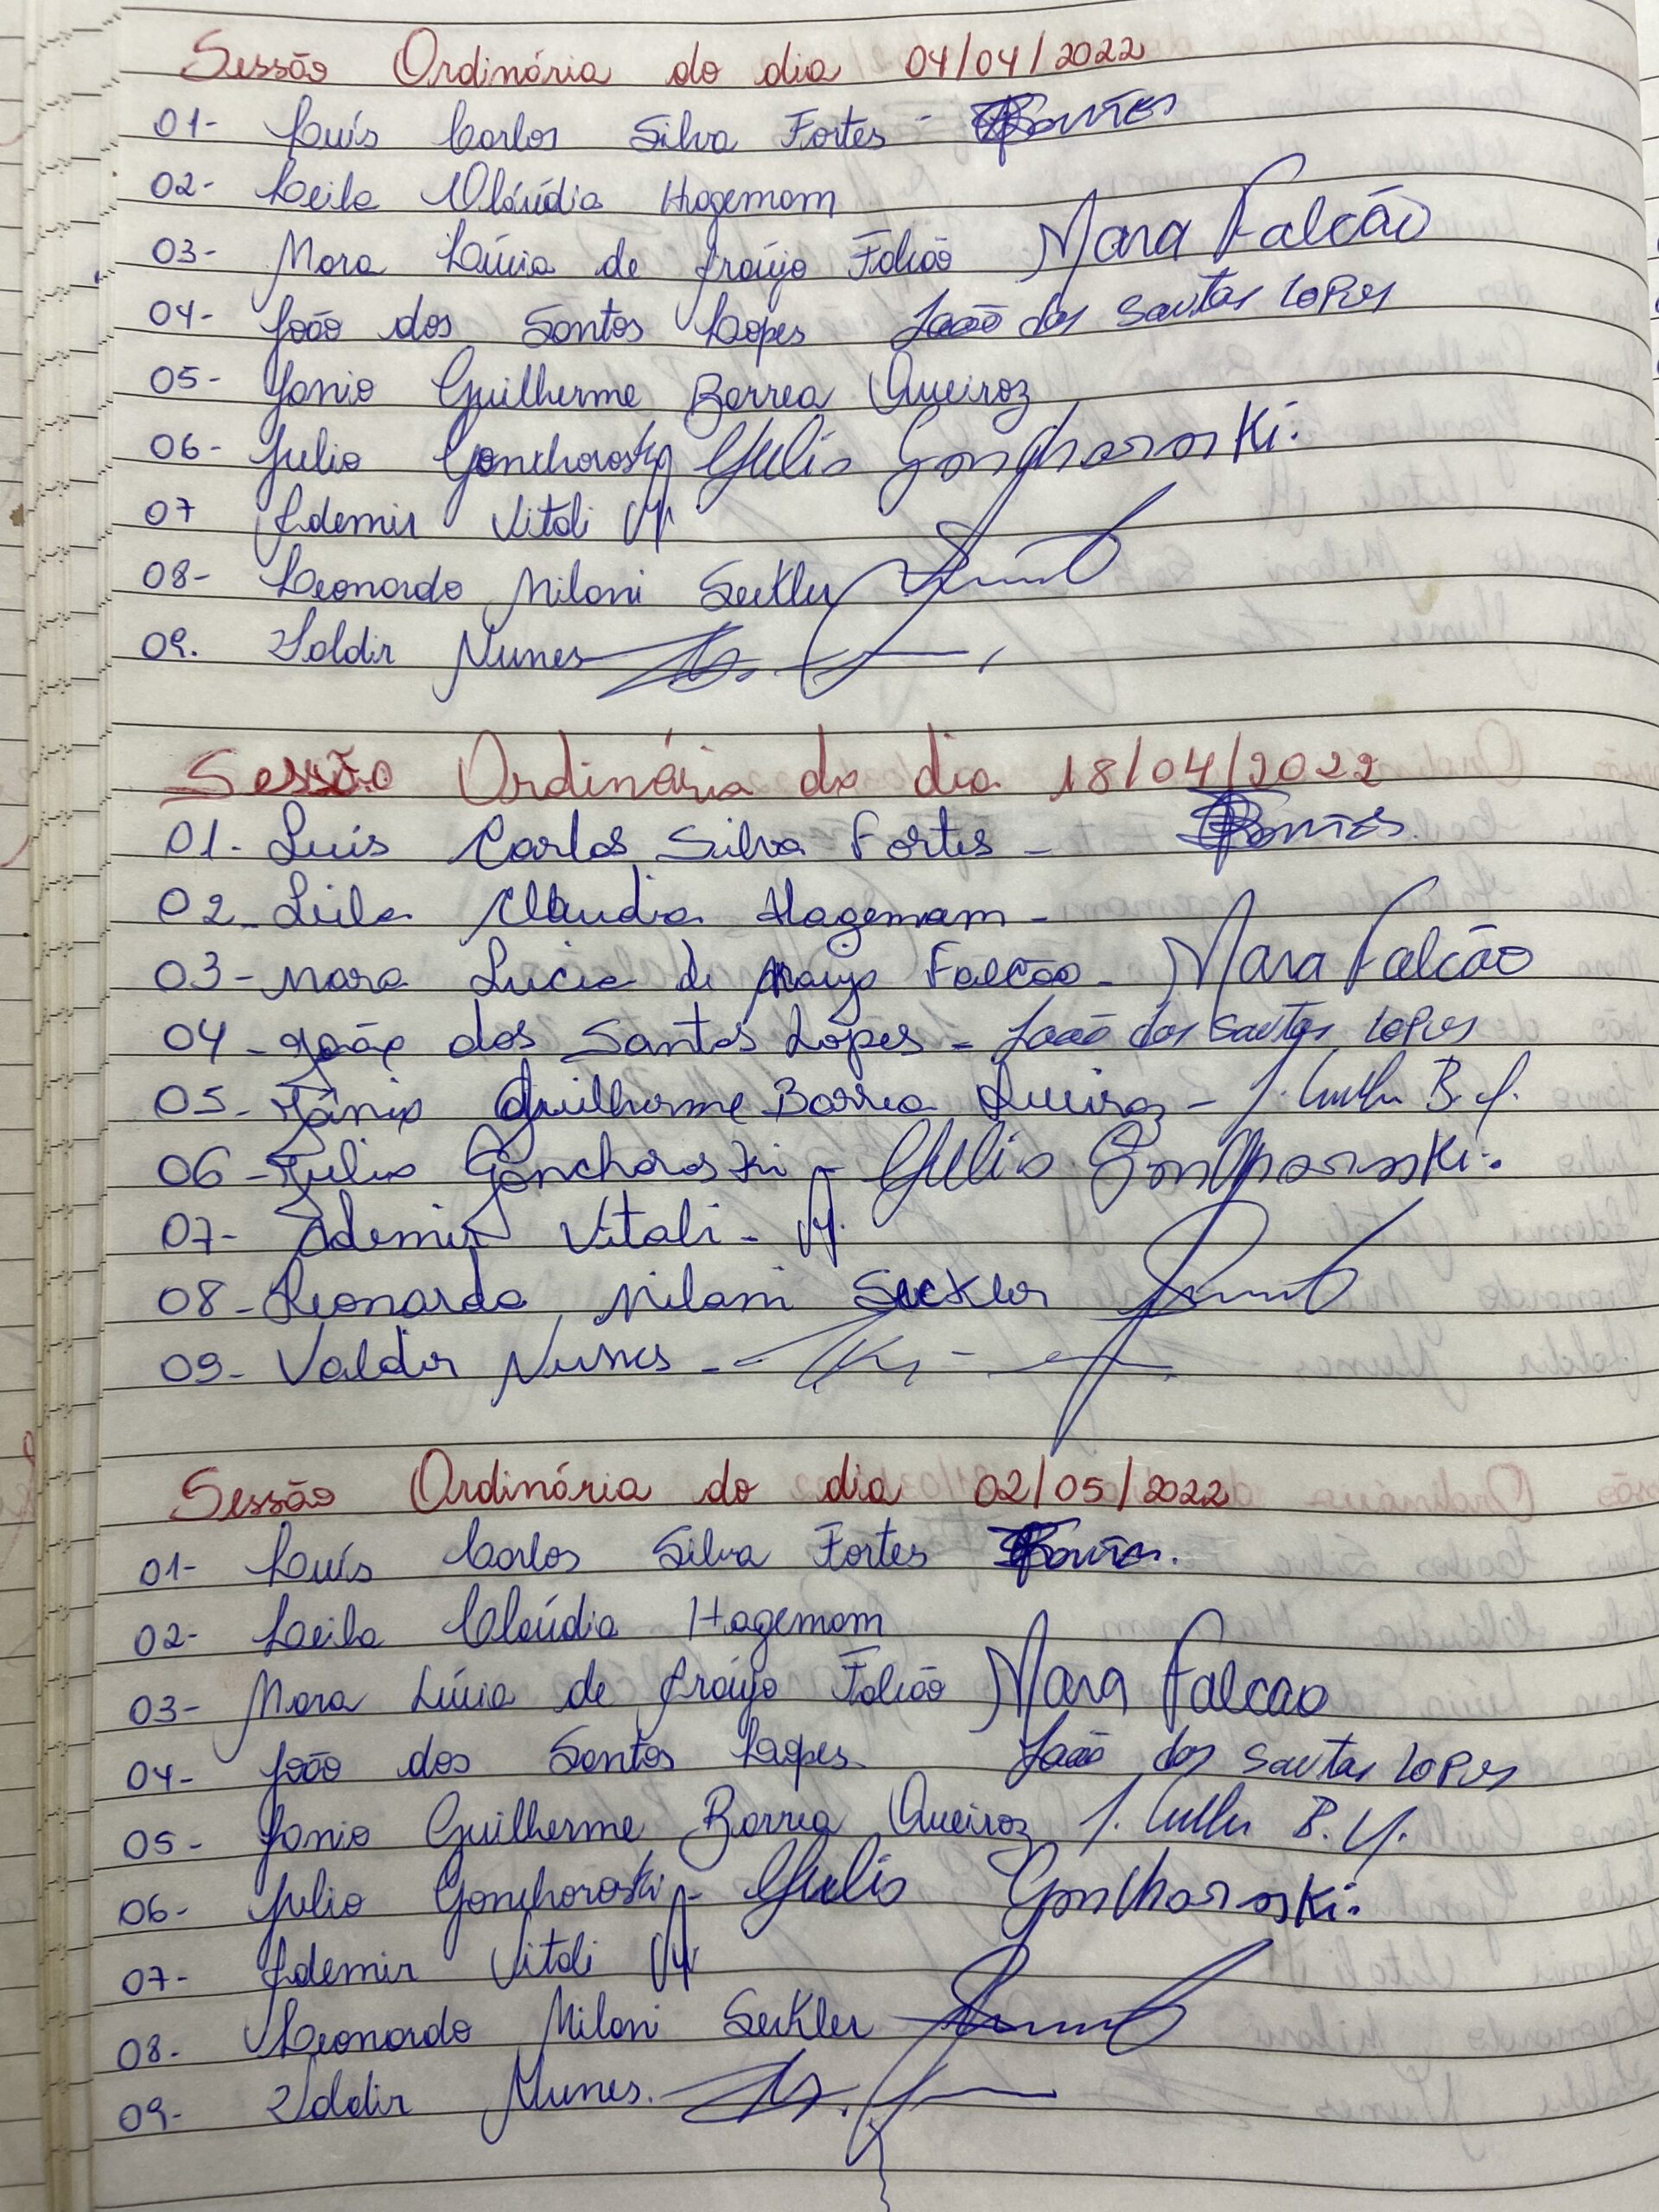 Sessão Ordinária do dia 04/04/2022
01- Luís Carlos Silva Fortes - Fortes
02- Leila Cláudia Hagemam
03- Mara Lúcia de Araújo Falcão Mara Falcão
04- João dos Santos Lopes João dos Santos Lopes
05- Janio Guilherme Borrea Queiroz
06- Julio Gonchoroski Julio Gonchoroski.
07 Ademir Vitali
08- Leonardo Milani Seckler
09. Valdir Nunes
Sessão Ordinária do dia 18/04/2022
01- Luis Carlos Silva Fortes -
02- Leila Claudia Hagemam -
03- Mara Lucia de Araujo Falcão - Mara Falcão
04- João dos Santos Lopes - João dos Santos Lopes
05- Jânio Guilherme Borrea Queiroz -
06- Julio Gonchoroski - Julio Gonchoroski.
07- Ademir Vitali -
08- Leonardo Milani Seckler
09- Valdir Nunes -
Sessão Ordinária do dia 02/05/2022
01- Luís Carlos Silva Fortes
02- Leila Claúdia Hagemam
03- Mara Lúcia de Araújo Falcão Mara Falcao
04- João dos Santos Lopes João dos Santos Lopes
05- Janio Guilherme Borrea Queiroz
06- Julio Gonchoroski - Julio Gonchoroski.
07- Ademir Vitali
08- Leonardo Milani Seckler
09- Valdir Nunes.